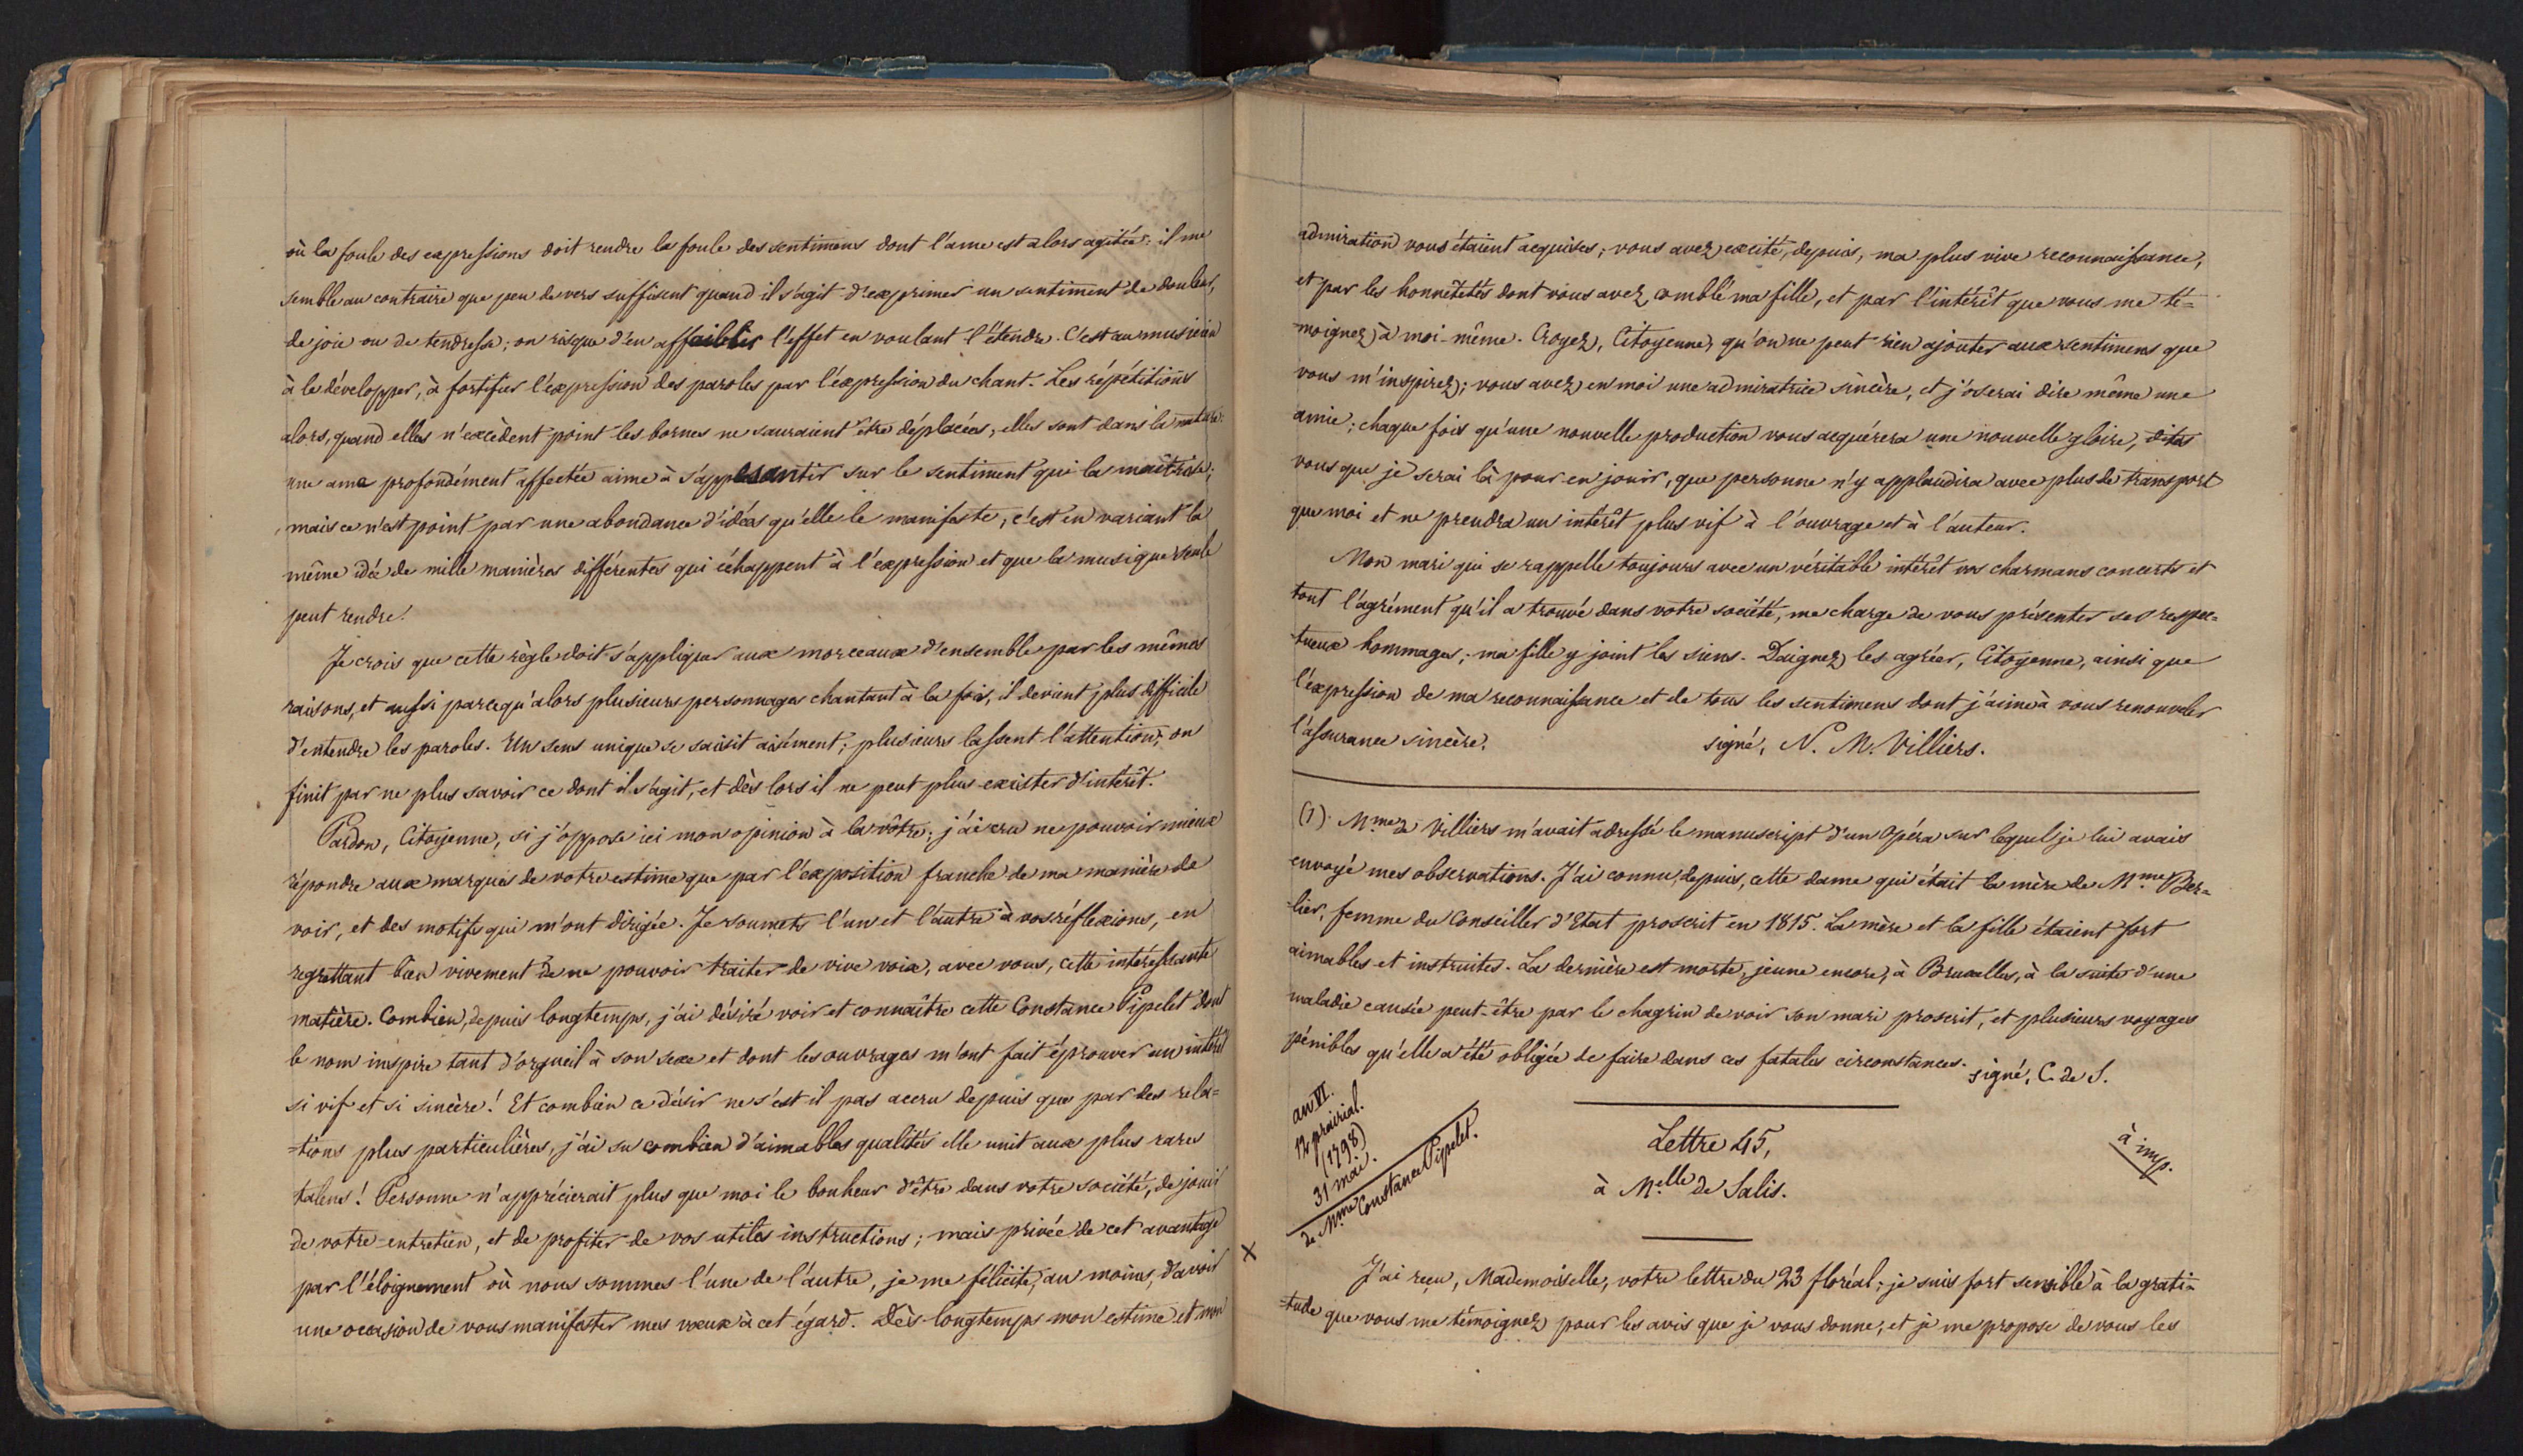 où la foule des expressions doit rendre la foule des sentimens dont l'ame est alors agitée: il me
semble au contraire que peu de vers suffisent quand il s'agit d'exprimer un sentiment de douleur,
de joie ou de tendresse; on risque d'en affaiblir l'effet en voulant l'étendre. C'est au musicien
à le développer, à fortifier l'expression des paroles par l'expression du chant. Les répétitions
alors, quand elles n'excèdent point les bornes ne sauraient être déplacées, elles sont dans la nature:
une ame profondément affectée aime à s'appesantir sur le sentiment qui la maîtrise;
mais ce n'est point par une abondance d'idées qu'elle le manifeste, c'est en variant la
même idée de mille manières différentes qui échappent à l'expression et que la musique seule
peut rendre.
Je crois que cette règle doit s'appliquer aux morceaux d'ensemble par les mêmes
raisons, et aussi parcequ'alors plusieurs personnages chantant à la fois, il devient plus difficile
d'entendre les paroles. Un sens unique se saisit aisément; plusieurs lassent l'attention, on
finit par ne plus savoir ce dont il s'agit, et dès lors il ne peut plus exister d'intérêt.
Pardon, Citoyenne, si j'oppose ici mon opinion à la vôtre; j'ai cru ne pouvoir mieux
répondre aux marques de votre estime que par l'exposition franche de ma manière de
voir, et des motifs qui m'ont dirigée. Je soumets l'un et l'autre à vos réflexions, en
regrettant bien vivement de ne pouvoir traiter de vive voix, avec vous, cette intéressante
matière. Combien, depuis longtemps, j'ai désiré voir et connaître cette Constance Pipelet dont
le nom inspire tant d'orgueil à son sexe et dont les ouvrages m'ont fait éprouver un intérêt
si vif et si sincère! Et combien ce désir ne s'est il pas accru depuis que par des rela=
=tions plus particulières, j'ai su combien d'aimables qualités elle unit aux plus rares
talens! Personne n'apprécierait plus que moi le bonheur d'être dans votre société, de jouir
de votre entretien, et de profiter de vos utiles instructions; mais privée de cet avantage
par l'éloignement où nous sommes l'une de l'autre, je me félicite, au moins, d'avoir
une occasion de vous manifester mes vœux à cet égard. Dès longtemps mon estime et mon
admiration vous étaient acquises; vous avez excité, depuis, ma plus vive reconnaissance,
et par les honnêtetés dont vous avez comblé ma fille, et par l'intérêt que vous me té=
moignez à moi-même. Croyez, Citoyenne, qu'on ne peut rien ajouter aux sentimens que
vous m'inspirez; vous avez en moi une admiratrice sincère, et j'oserai dire même une
amie; chaque fois qu'une nouvelle production vous acquérera une nouvelle gloire, dites
vous que je serai là pour en jouir, que personne n'y applaudira avec plus de transport
que moi et ne prendra un intérêt plus vif à l'ouvrage et à l'auteur.
Mon mari qui se rappelle toujours avec un véritable intérêt vos charmans concerts et
tout l'agrément qu'il a trouvé dans votre société, me charge de vous présenter ses respec=
tueux hommages; ma fille y joint les siens. Daignez les agréer, Citoyenne, ainsi que
l'expression de ma reconnaissance et de tous les sentimens dont j'aime à vous renouveler
l'assurance sincère. signé, N. M. Villiers.
(1). Mme de Villiers m'avait adressé le manuscript d'un Opéra sur lequel je lui avais
envoyé mes observations. J'ai connu, depuis, cette dame qui était la mère de Mme Ber=
lier, femme du Conseiller d'Etat proscrit en 1815. La mère et la fille étaient fort
aimables et instruites. La dernière est morte, jeune encore, à Bruxelles, à la suite d'une
maladie causée peut-être par le chagrin de voir son mari proscrit, et plusieurs voyages
pénibles qu'elle a été obligée de faire dans ces fatales circonstances. signé, C. de S.
an VI.
12 prairial.
(1798)
31 mai.
de Mme Constance Pipelet.
Lettre 45,
à Melle de Salis.
à imp.
X
J'ai reçu, Mademoiselle, votre lettre du 23 floréal; je suis fort sensible à la grati=
=tude que vous me témoignez pour les avis que je vous donne, et je me propose de vous les